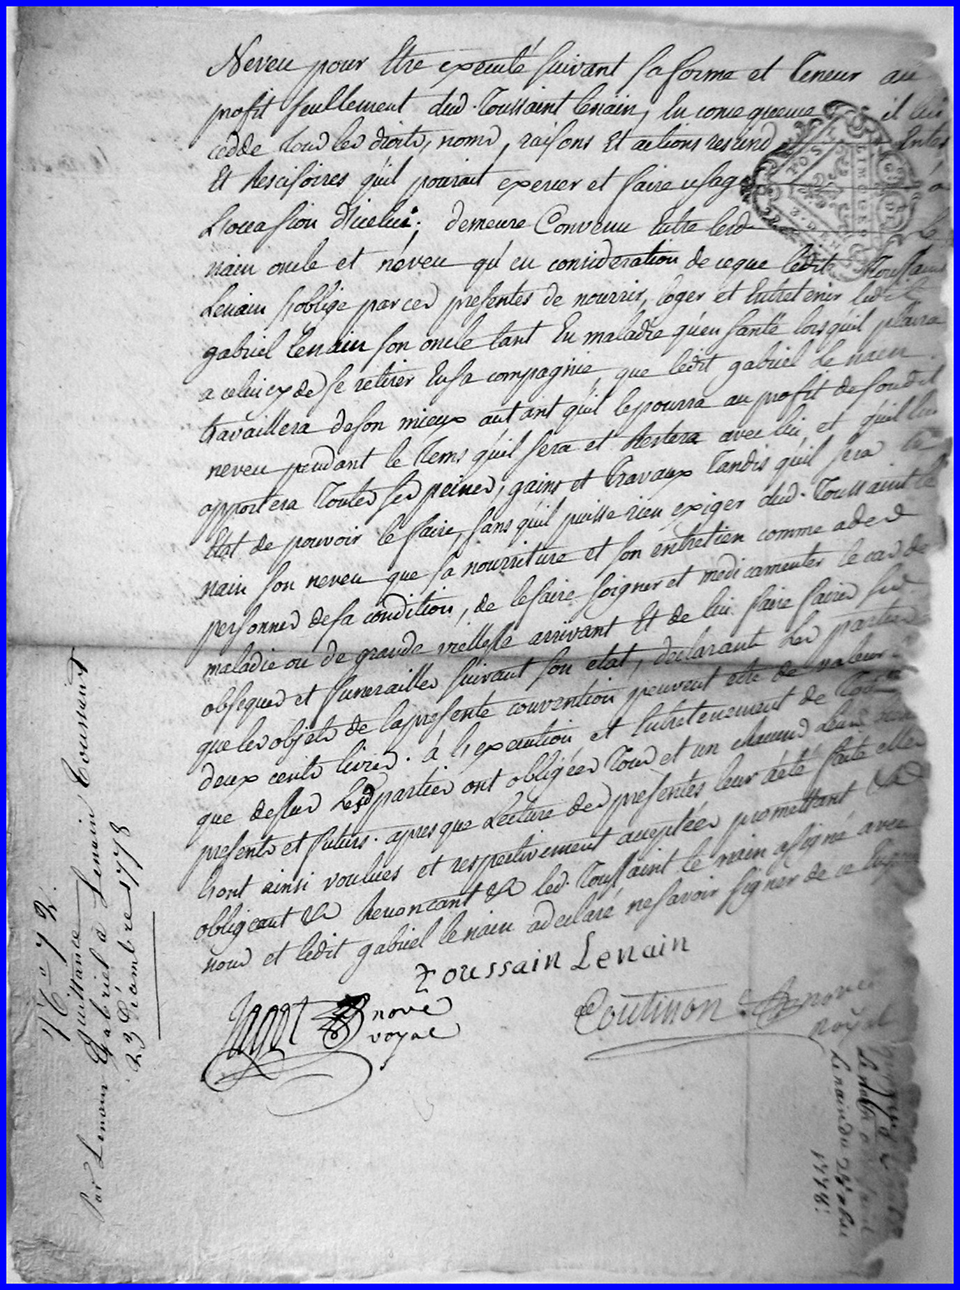 Neveu pour Etre executé suivant sa forme et teneur au
profit seullement dud. Toussaint lenain, En consequence il lui
cedde Tous les droits, noms, raisons Et actions rescind Entes
Et Rescisoires qu'il pourait exercer et faire usage a
L'occasion d'icelui; demeure Convenu Entre lesd Le
nain oncle et neveu qu'en consideration de ceque ledit Toussaint
Lenain s'oblige par ces presentes de nourrir, loger et Entretenir ledit
gabriel lenain son oncle tant En maladie qu'en santé lorsqu'il plaira
a celui cy de se retirer En sa compagnie, que ledit gabriel le nain
travaillera de son mieux autant qu'il le pourra au profit de son dit
neveu pendant le tems qu'il sera et Restera avec lui, et qu'il lui
apportera Toutes ses peines, gains et travaux tandis qu'il sera En
Etat de pouvoir le faire, sans qu'il puisse rien exiger dud. Toussaint le
nain son neveu que sa nourriture et son entretien comme a des
personnes de sa condition, de le faire soigner et medicamenter le cas de
maladie ou de grande vieillesse arrivant Et de lui faire faire ses
obseques et funerailles suivant son etat, declarants Les parties
que les objets de la presente convention peuvent etre de valeur
deux cents livres. à l'execution et Entretenement de Tout ce
que dessus Lesd parties ont obligées Tous et un chacuns leurs biens
presents et futurs. apres que Lecture des presentes leur a été faite elles
L'ont ainsi voulues et respectivement acceptées promettant &a
obligeant &a Renonçant &a led. Toussaint le nain a signé avec
nous et ledit gabriel le nain a declaré ne savoir signer de ce Enquis
Toussain Lenain
nore
royal
Coutinon nore
royal
16 72
Quittance
Par Lenain Gabriel à Lenain Toussaint
23 Décembre 1778
Lenain
Lenain du 23 xbre
1778.
LIMOGES